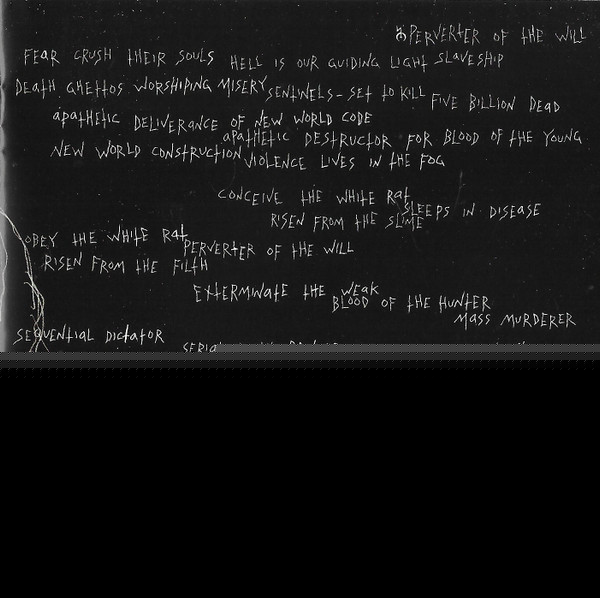 PERVERTER OF THE WILL
FEAR CRUSH THEIR SOULS HELL IS OUR GUIDING LIGHT SLAVESHIP
DEATH GHETTOS WORSHIPING MISERY SENTINELS - SET TO KILL FIVE BILLION DEAD
APATHETIC DELIVERANCE OF NEW WORLD CODE
APATHETIC DESTRUCTOR FOR BLOOD OF THE YOUNG
NEW WORLD CONSTRUCTION VIOLENCE LIVES IN THE FOG
CONCEIVE THE WHITE RAT
SLEEPS IN DISEASE
RISEN FROM THE SLIME
OBEY THE WHITE RAT
PERVERTER OF THE WILL
RISEN FROM THE FILTH
EXTERMINATE THE WEAK
BLOOD OF THE HUNTER
MASS MURDERER
SEQUENTIAL DICTATOR